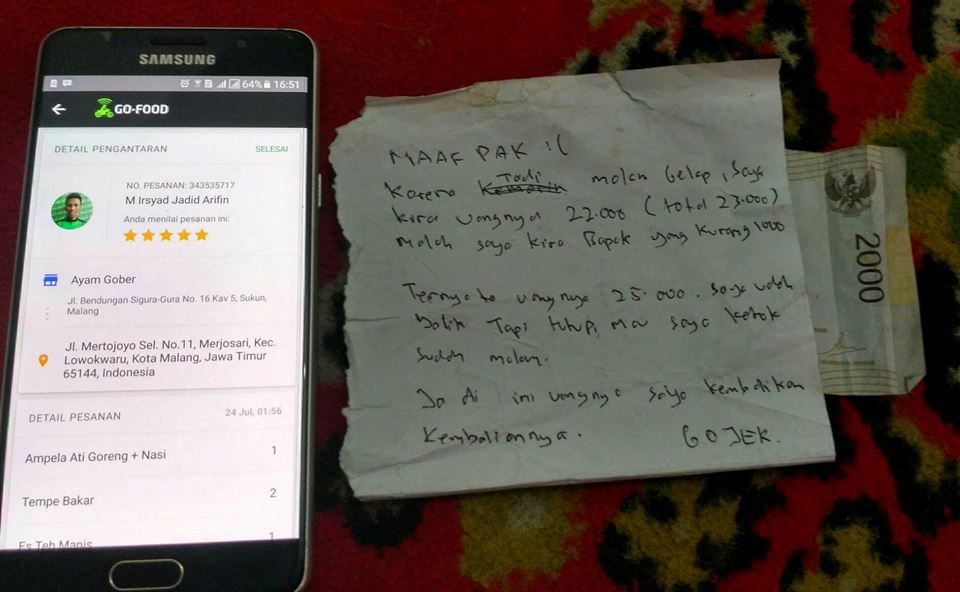 SAMSUNG
64% 16:51
GO-FOOD
DETAIL PENGANTARAN SELESAI
NO. PESANAN: 343535717
M Irsyad Jadid Arifin
Anda menilai pesanan ini:
Ayam Gober
Jl. Bendungan Sigura-Gura No. 16 Kav 5, Sukun,
Malang
Jl. Mertojoyo Sel. No.11, Merjosari, Kec.
Lowokwaru, Kota Malang, Jawa Timur
65144, Indonesia
DETAIL PESANAN 24 Jul, 01:56
Ampela Ati Goreng + Nasi 1
Tempe Bakar 2
Es Teh Manis 1
MAAF PAK :(
Karena Tadi malam Gelap, saya
kira uangnya 22.000 (total 23.000)
malah saya kira Bapak yang kurang 1000
Ternyata uangnya 25.000. saya udah
balik Tapi tutup, mau saya ketok
sudah malam.
Ja di ini uangnya saya kembalikan
kembaliannya. GOJEK.
2000